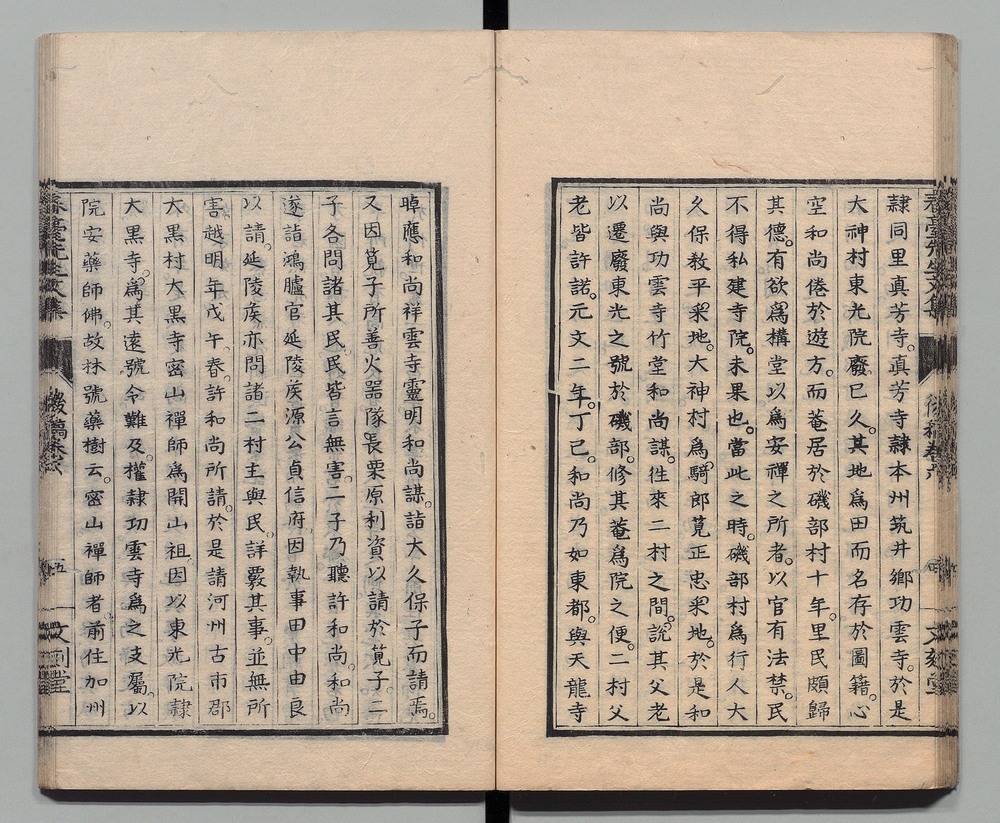 隷同里真芳寺。真芳寺隷本州筑井鄉功雲寺。於是
大神村東光院廢已久。其地爲田而名存於圖籍。心
空和尚倦於遊方。而菴居於磯部村十年。里民頗歸
其德。有欲爲構堂以爲安禪之所者。以官有法禁。民
不得私建寺院。未果也。當此之時。磯部村爲行人大
久保敎平采地。大神村爲騎郎筧正忠采地。於是和
尚與功雲寺竹堂和尚謀。往來二村之間。說其父老
以遷廢東光之號於磯部。修其菴爲院之便。二村父
老皆許諾。元文二年。丁巳。和尚乃如東都。與天龍寺
晫應和尚祥雲寺靈明和尚謀。詣大久保子而請焉。
又因筧子所善火器隊長栗原利資以請於筧子。二
子各問諸其民。民皆言無害。二子乃聽許和尚。和尚
遂詣鴻臚官延陵侯源公貞信府。因執事田中由良
以請。延陵侯亦問諸二村主與民。詳覈其事。並無所
害。越明年戊午春。許和尚所請。於是請河州古市郡
大黒村大黒寺密山禪師爲開山祖。因以東光院隷
大黒寺。爲其遠號令難及。權隷功雲寺爲之支屬。以
院安藥師佛。故林號藥樹云。密山禪師者。前住加州
春臺先生文集
後稿卷六
五
文刻堂